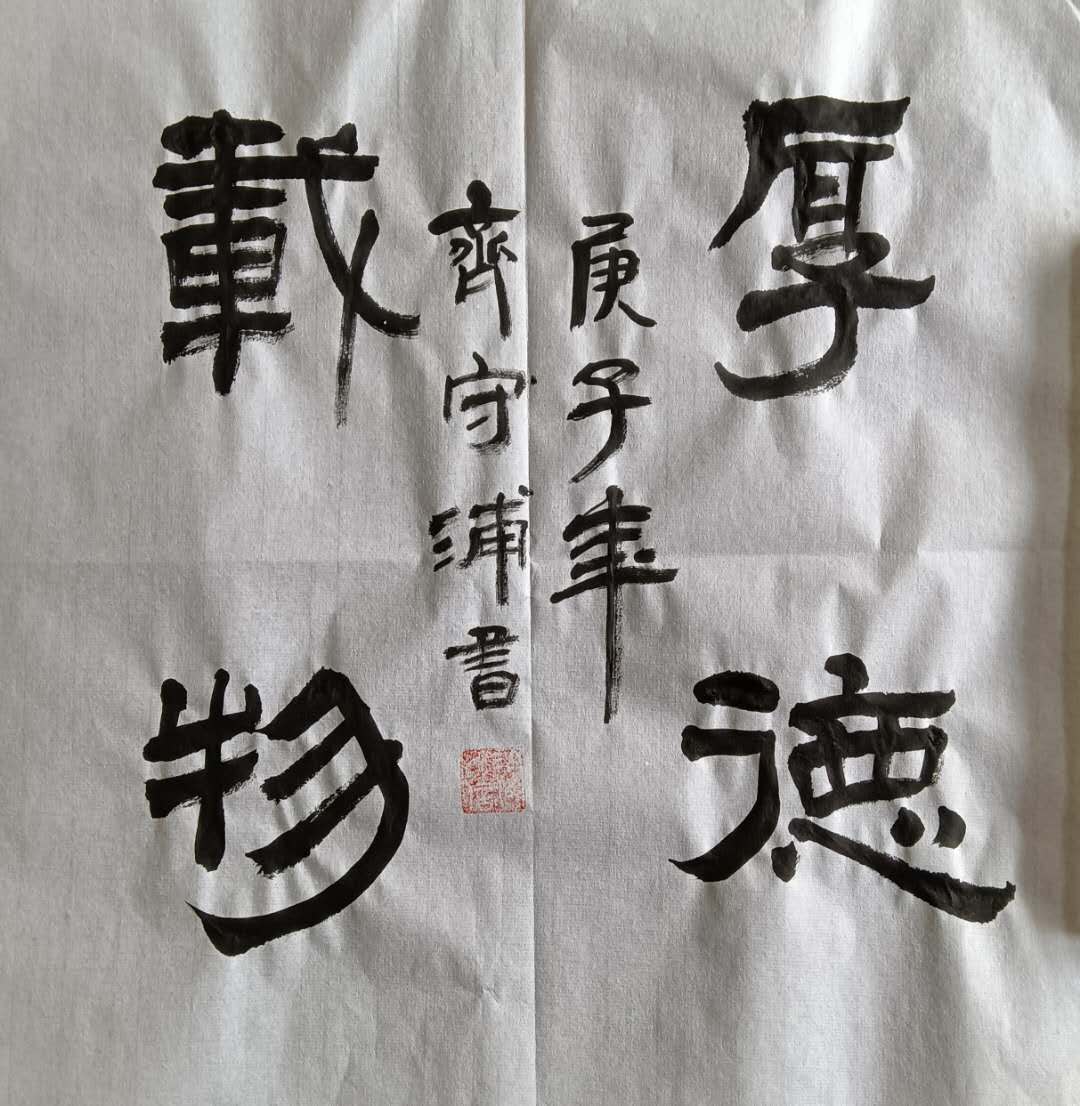 厚德
載物
庚子年
齊守浦書